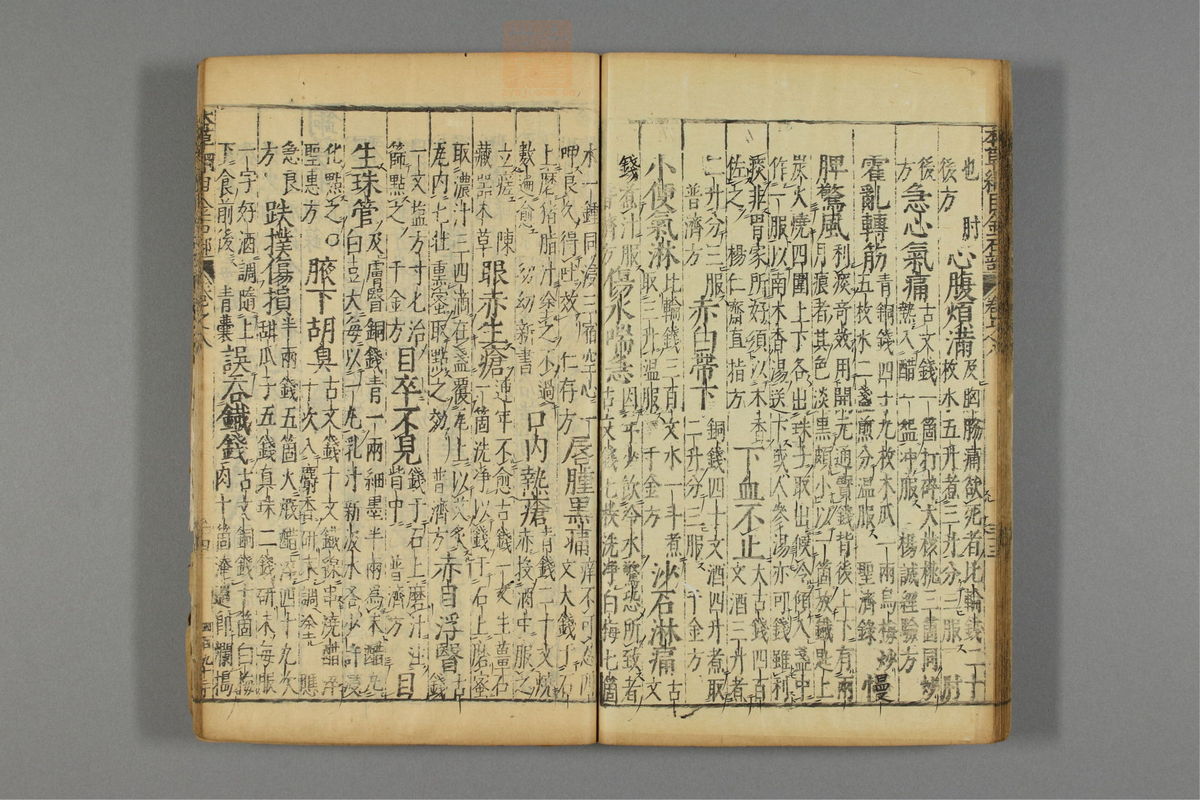 本草綱目金石部 卷之八
也 肘
後方
心腹煩滿 及胸脇痛欲死者比輪錢二十
枚水五升煮三升分三服 肘
後
方
急心氣痛 古文錢一箇打碎大核桃三箇同炒
熱入醋一盌冲服 楊誠經驗方
霍亂轉筋 青銅錢四十九枚木瓜一兩烏梅炒
五枚水二盞煎分溫服 聖濟錄
慢
脾驚風 利痰竒效用開元通寶錢背後上下有兩
月痕者其色淡黑頗小以一箇放鐵匙上
炭火燒四圍上下各出珠子取出候冷傾入盞中
作一服以南木香湯送下或人參湯亦可錢雖利
痰非胃家所好須以木香
佐之 楊仁齋直指方
下血不止 大古錢四百
文酒三升煮
二升分三服
普濟方
赤白帶下 銅錢四十文酒四升煮取
二升分三服 千金方
小便氣淋 比輪錢三百文水一斗煮
取三升溫服 千金方
沙石淋痛 古
文
錢煮汁服
普濟方
傷水喘急 因年少飲冷水驚恐所致者
古文錢七枚洗淨白梅七箇
水一鍾同浸三宿空心一
呷良久得吐效 仁存方
唇腫黑痛 痒不可忍四
文大錢于石
上磨猪脂汁塗之不過
數遍愈 幼幼新書
口內熱瘡 青錢二十文燒
赤投酒中服之
立瘥 陳
藏器本草
眼赤生瘡 連年不愈古錢一文生薑
一箇洗淨以錢于石上磨蜜
取濃汁三四滴在盞覆瓦上以艾炙
瓦內七壯熏蜜取點之效 普濟方
赤目浮翳 古
錢
一文塩方寸匕治
篩點之 千金方
目卒不見 錢于石上磨汁注
眥中 普濟方
目
生珠管 及膚翳銅錢青一兩細墨半兩爲末醋丸
白豆大每以一丸乳汁新汲水各少許浸
化點之○
聖惠方
腋下胡臭 古文錢十文鐵線串燒醋淬
十次入麝香研末調塗 應
急良
方
跌撲傷損 半兩錢五箇火煅醋淬四十九次
甜瓜子五錢真珠二錢研末每服
一字好酒調隨上
下食前後 青囊
誤吞鐵錢 古文銅錢十箇白梅
肉十箇淹過即爛搗